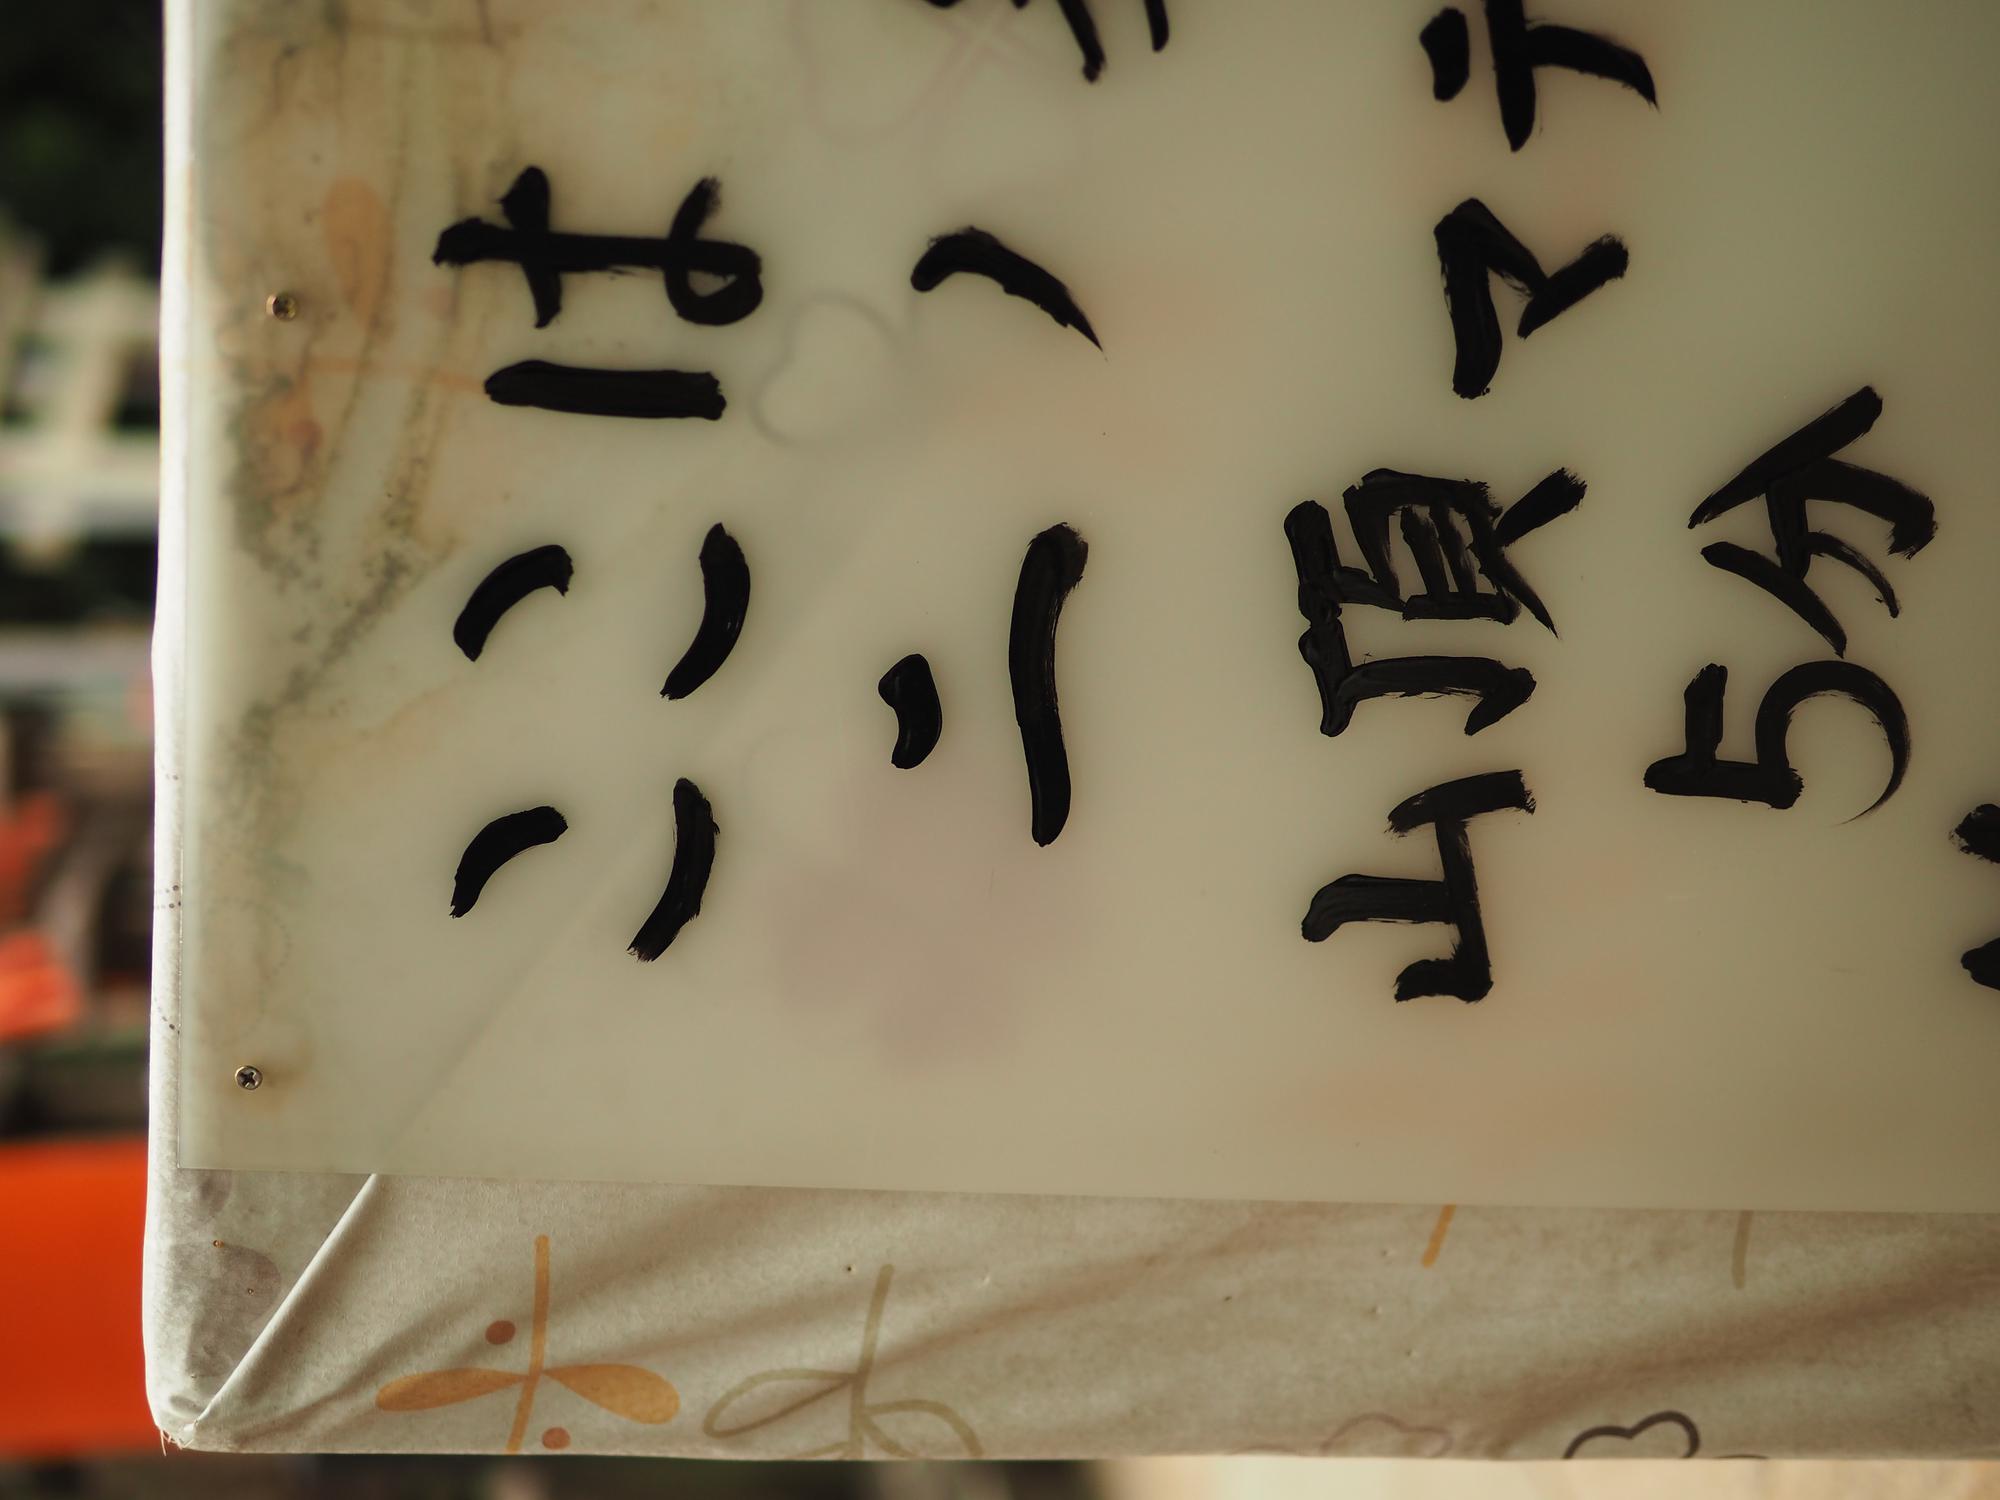 ここは
二ノ
山頂マテ
5分